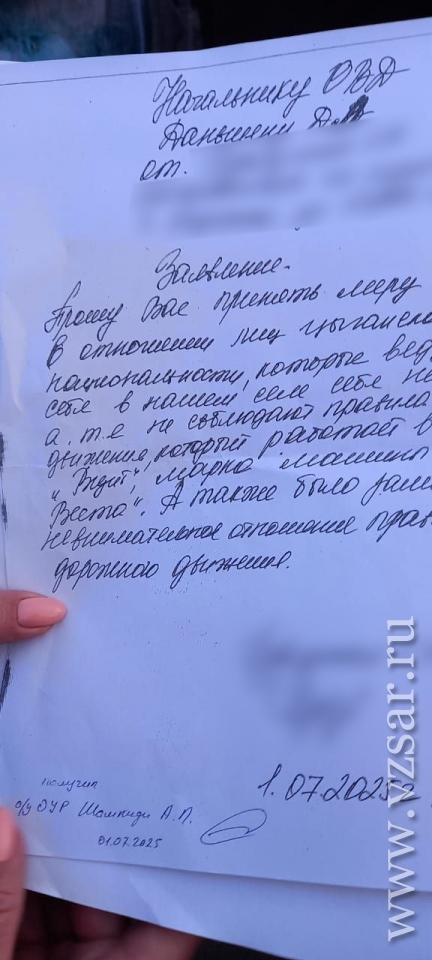 Начальнику ОВД
Даньшени Д.
от.
Заявление.
Прошу Вас принять меру
в отношении лиц цыганско
национальности, которые вед
себя в нашем селе себе не
а, т.е не соблюдают правила
движения, который работает в
марка машины
Веста". А также было заме
невнимательное отношение прав
дорожного движения.
1.07.2025г
получил
о/у ОУР А.П.
01.07.2025
www.vzsar.ru